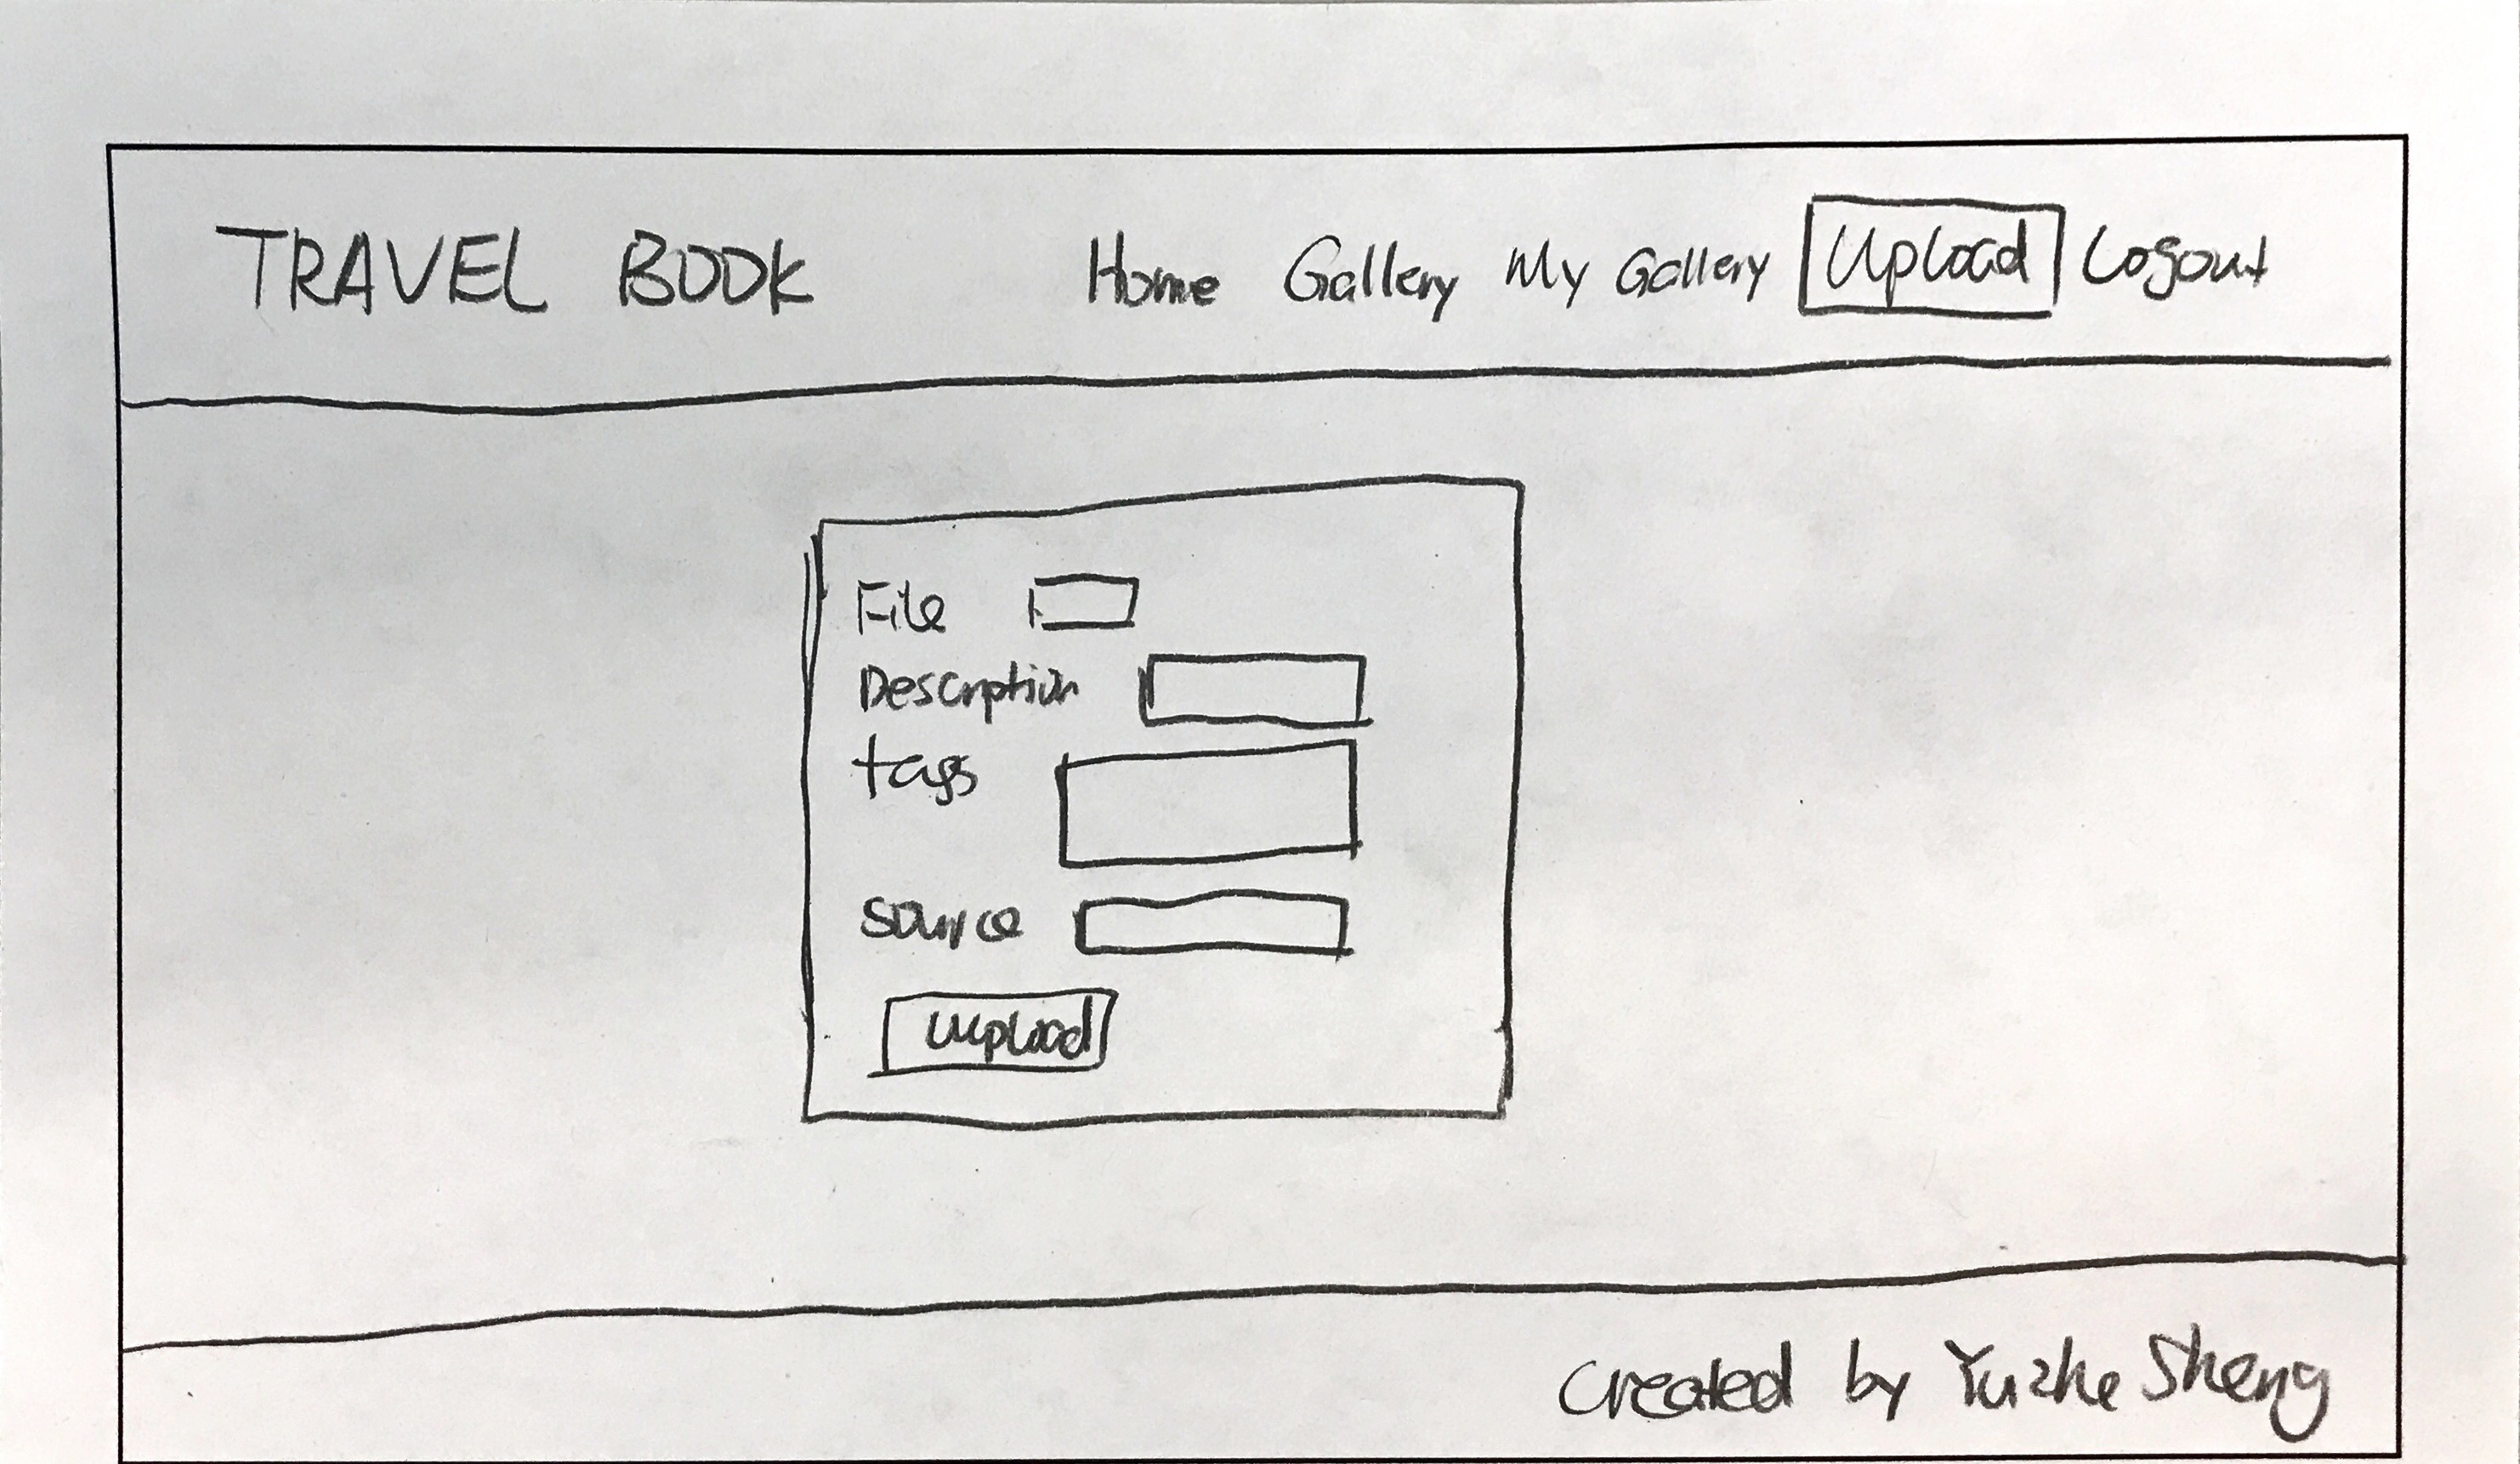 TRAVEL BOOK Home Gallery My Gallery Upload Logout
File
Description
tags
source
upload
Created by Yuzhe Sheng